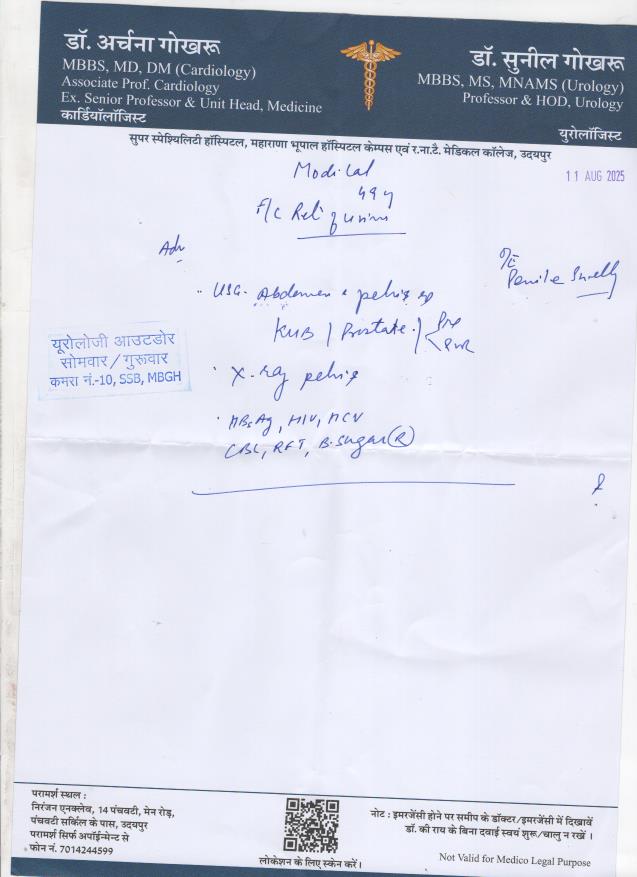 डॉ. अर्चना गोखरू
MBBS, MD, DM (Cardiology)
Associate Prof. Cardiology
Ex. Senior Professor & Unit Head, Medicine
कार्डियॉलॉजिस्ट
डॉ. सुनील गोखरू
MBBS, MS, MNAMS (Urology)
Professor & HOD, Urology
यूरोलॉजिस्ट
सुपर स्पेश्यिलिटी हॉस्पिटल, महाराणा भूपाल हॉस्पिटल केम्पस एवं र.ना.टै. मेडिकल कॉलेज, उदयपुर
11 AUG 2025
49y
Adv
O/E
Penile
USG. Abdomen & pelvis
KUB / Prostate /
PVR
X-ray pelvis
HBsAg, HIV, HCV
CBC, RFT, B. Sugar (R)
यूरोलोजी आउटडोर
सोमवार / गुरूवार
कमरा नं.-10, SSB, MBGH
परामर्श स्थल :
निरंजन एनक्लेव, 14 पंचवटी, मेन रोड़,
पंचवटी सर्किल के पास, उदयपुर
परामर्श सिर्फ अपॉईन्मेन्ट से
फोन नं. 7014244599
लोकेशन के लिए स्केन करें।
नोट : इमरजेंसी होने पर समीप के डॉक्टर/इमरजेंसी में दिखावें
डॉ. की राय के बिना दवाई स्वयं शुरू/चालु न रखें ।
Not Valid for Medico Legal Purpose